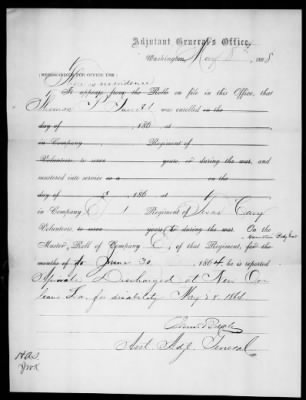 Adjutant General's Office,
Washington, May 8, 1868
(MEMORANDUM FOR OFFICE USE.)
It appears from the Rolls on file in this Office, that
was enrolled on the
day of , 186 , at
in Company , Regiment of
Volunteers, to serve years, or during the war, and
mustered into service as a on the
day of , 186 , at
in Company D, 1 Regiment of Texas Cavy
Volunteers, to serve years, or during the war. On the
Muster Roll of Company D, of that Regiment, for the
months of to June 30, 1864, he is reported
Private Discharged at New Or
leans La. for disability May 28 1864
Asst Adjt General